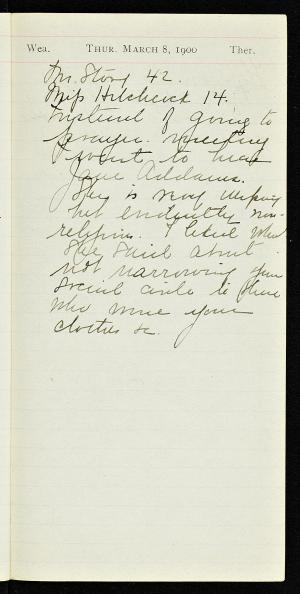 Wea. THUR. MARCH 8, 1900 Ther.
Mr. Story 42.
Miss Hitchcock 14.
Instead of going to
prayer-meeting
I went to hear
Jane Addams.
She is very
but evidently non-
religious. I liked what
she said about
not narrowing your
social circle to those
who wore your
clothes &c.